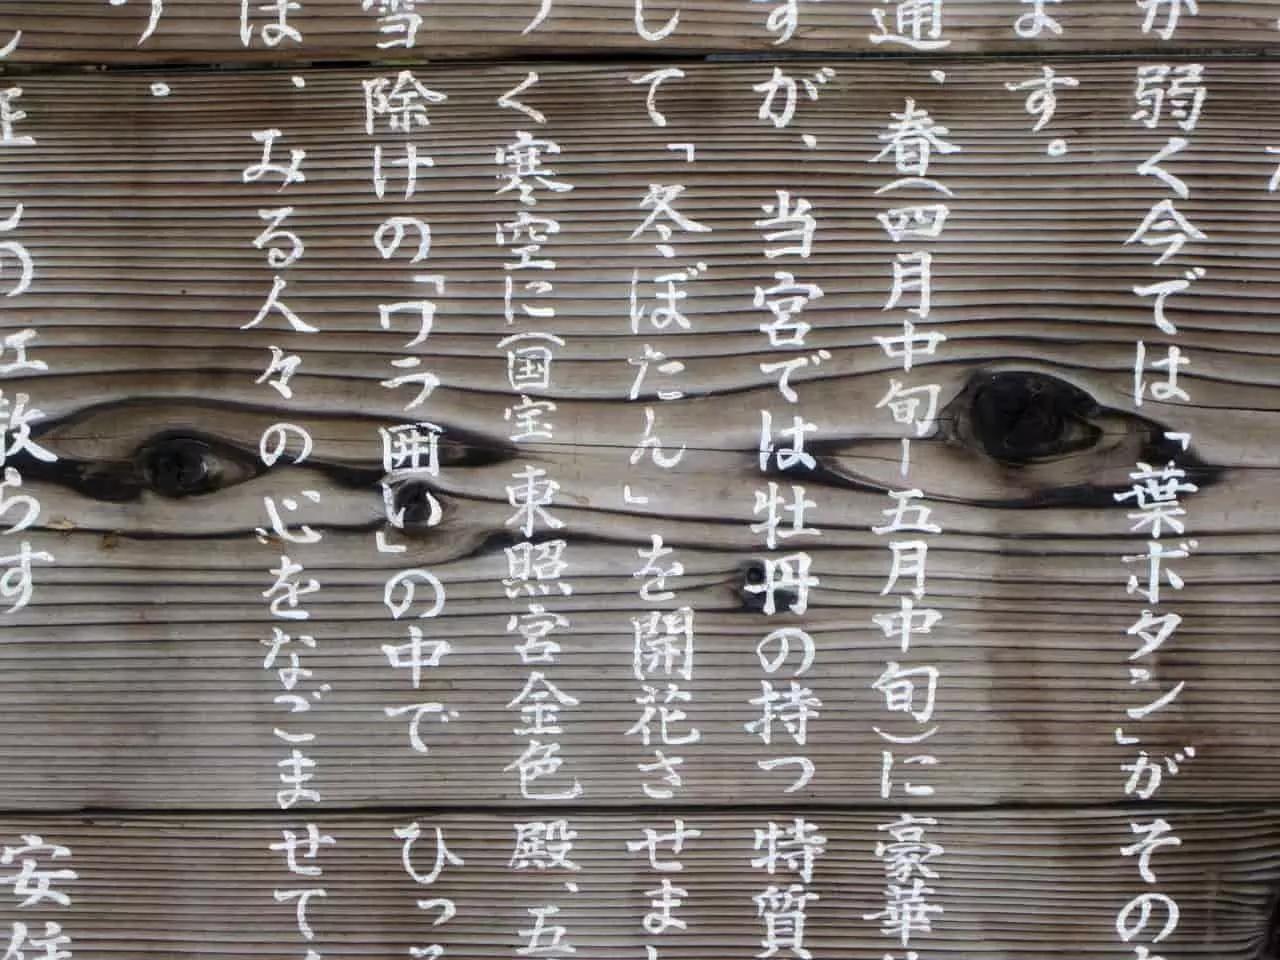 弱く今では「葉ボタン」がその
ます。
通、春(四月中旬ー五月中旬)に豪華
すが、当宮では牡丹の持つ特質
して「冬ぼたん」を開花させまし
く寒空に(国宝 東照宮金色殿、五
雪除けの「ワラ囲い」の中でひっそ
は、みる人々の心をなごませて
う。
散らす
安住